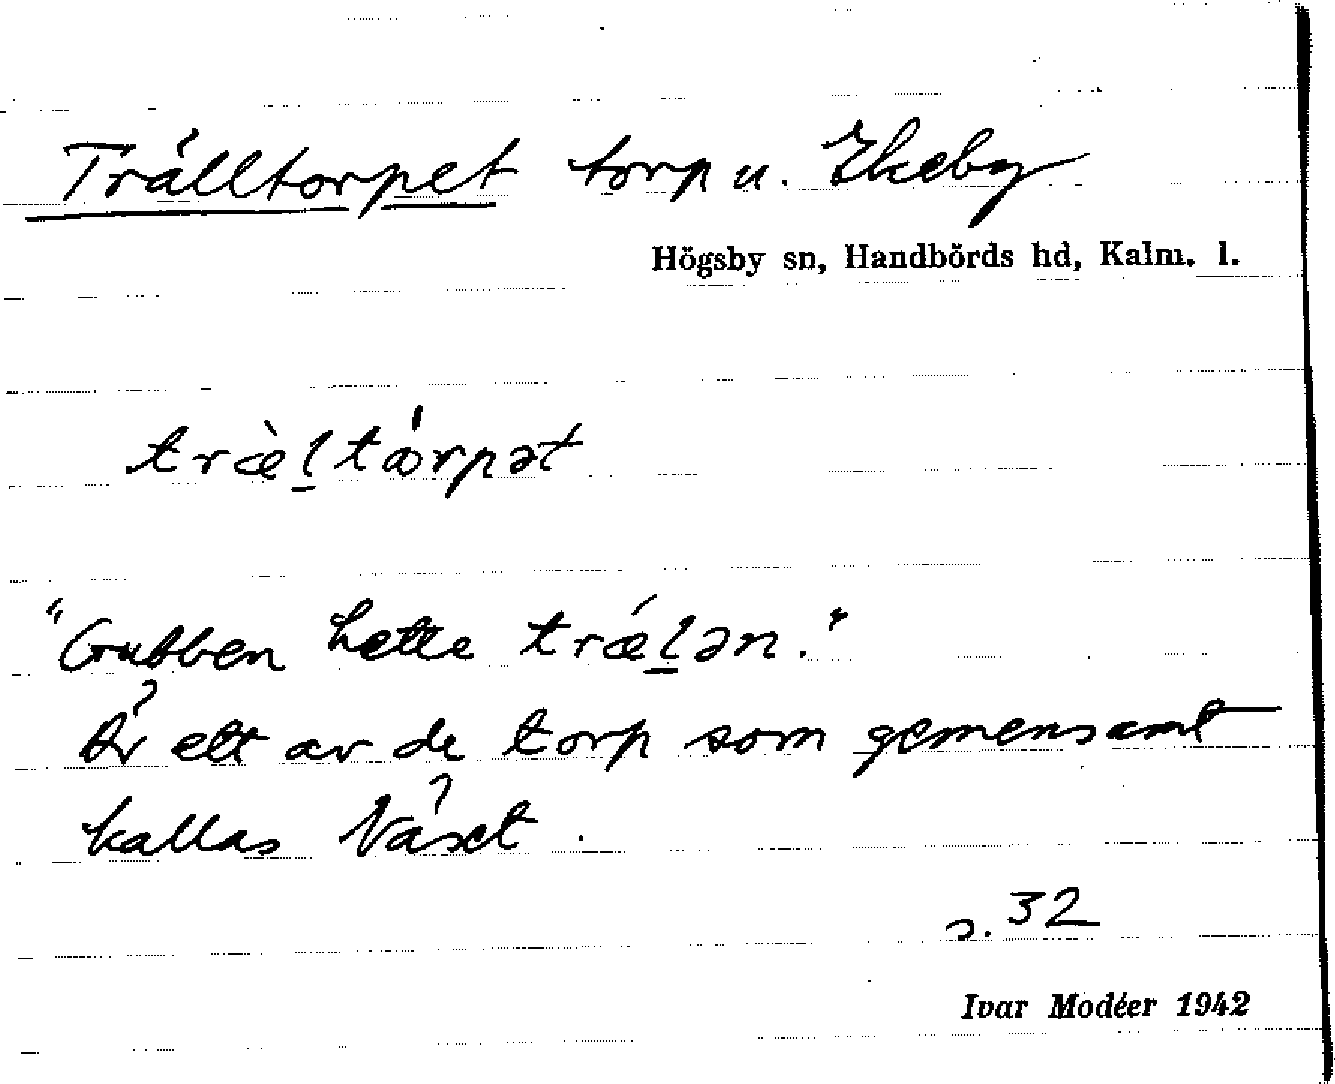 Trälltorpet torp u. Ekeby
Högsby sn, Handbörds hd, Kalm. l.
træ̀l̲tǿrpət
"Gubben hette trǽl̲ən."
Är ett av de torp som gemensamt
kallas Näset.
s. 32
Ivar Modéer 1942